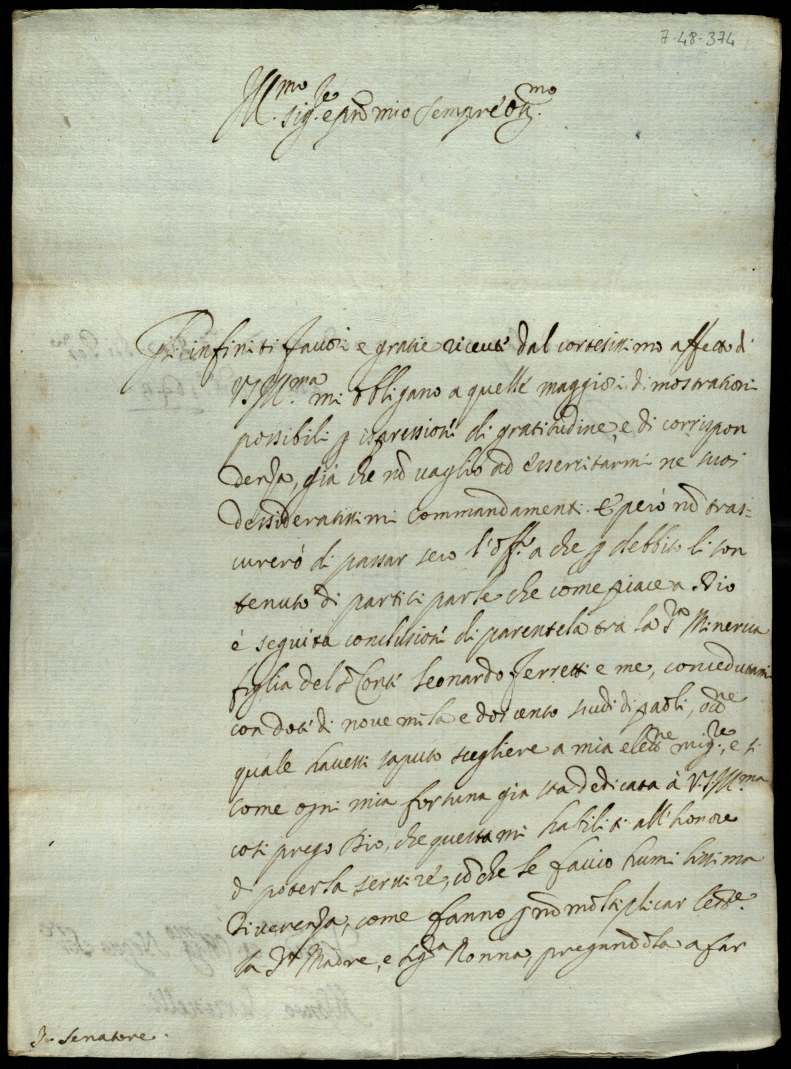 7-48-374
Ill.mo
sig.re e pron mio sempre Oss.mo
Gl'infiniti favori e gratie ricevute dal cortesissimo affetto di
V.S. Ill.ma mi obligano a quelle maggiori dimostrationi
possibili p espressioni di gratitudine, e di corrispon
denza, già che nõ vaglio ad essercitarmi ne suoi
dessideratissimi commandamenti. E però nõ tras=
curerò di passar seco l'off.o a che p debbito li son
tenuto di parteciparle che come piace a Dio
è seguita conclusione di parentela tra la S.ra Minerva
figlia del S. Conte Leonardo Ferretti e me, conceduta mi
con dote di nove mila e doicento scudi di paoli,
quale havessi saputo scegliere a mia elett.ne mig.re, e si
come ogni mia fortuna gia sta dedicata à V.S. Ill.ma
così prego Dio, che questa mi habiliti all'honore
di poterla servire, cõ che le faccio humilissima
riverenza, come fanno p nõ moltiplicar lettere
la S.ra Madre, e sig.ra Nonna, pregandola a far
S. Senatore.